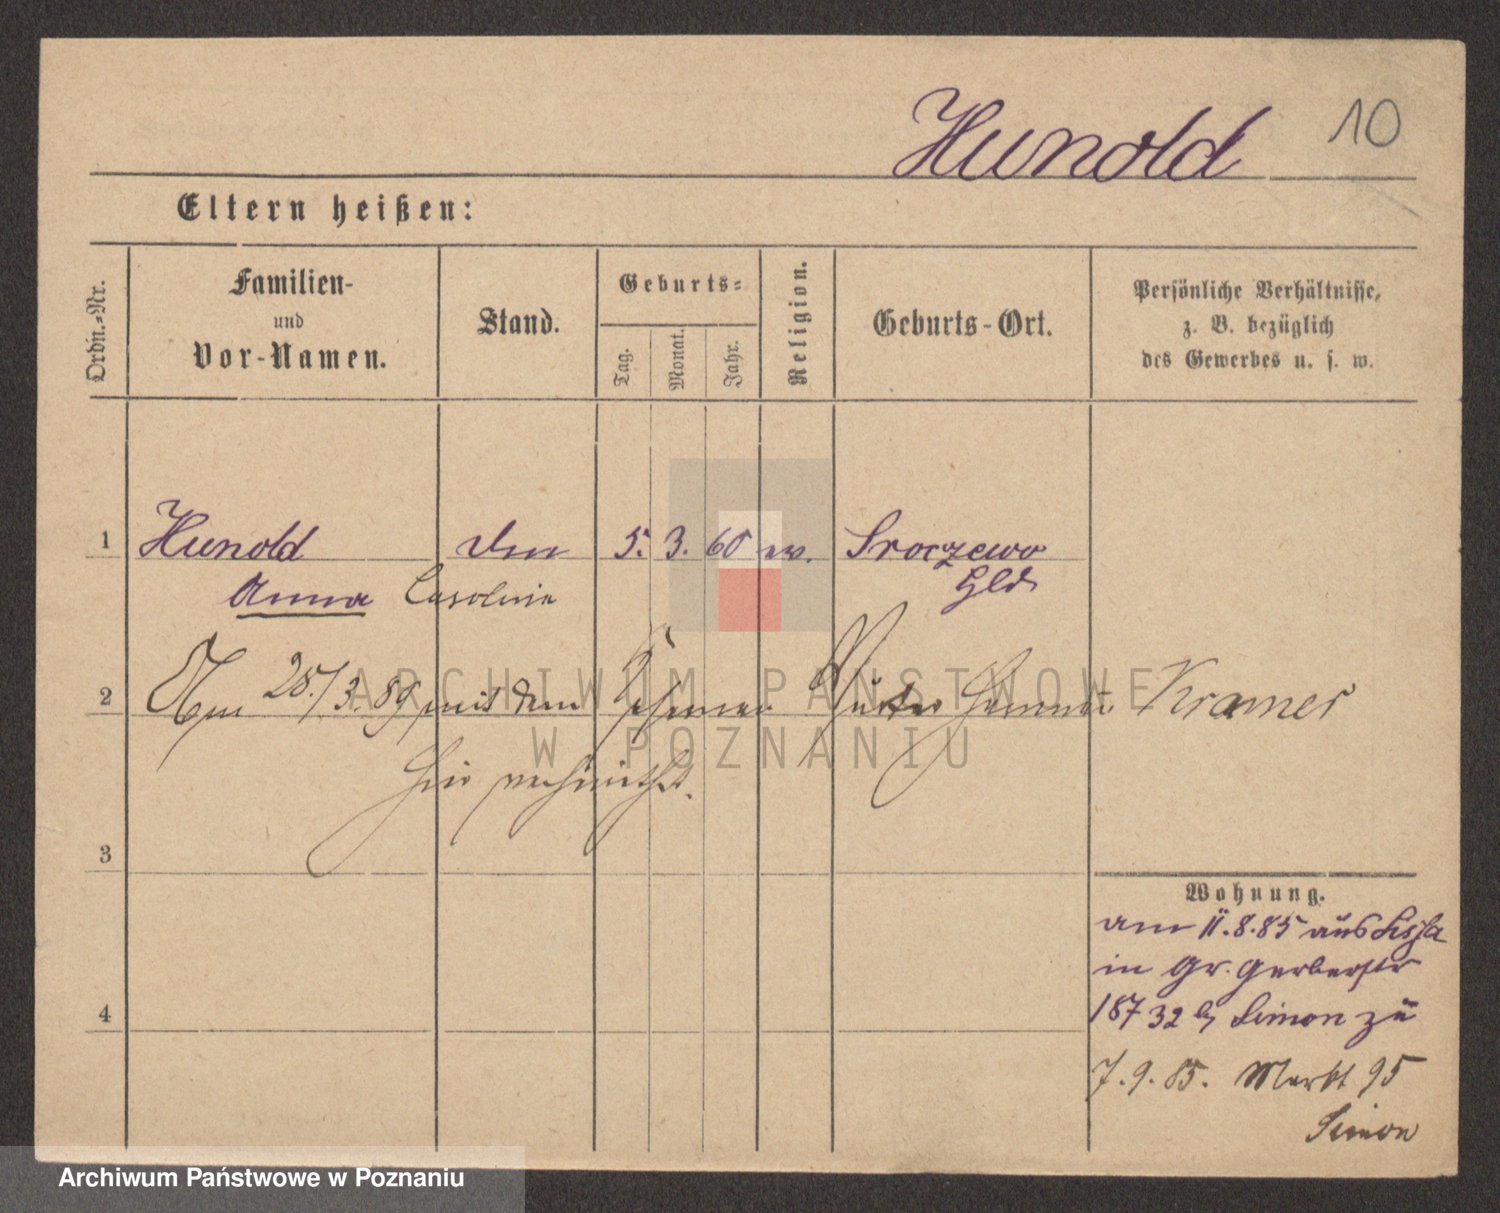 Hunold 10
Eltern heißen:
Ordn.-Nr.
Familien-
und
Vor-Namen.
Stand.
Geburts-
Tag.
Monat.
Jahr.
Religion.
Geburts-Ort.
Persönliche Verhältnisse,
z. B. bezüglich
des Gewerbes u. s. w.
1 Hunold 5. 3. 60 ev. Sroczewo
Anna Caroline
2 Am 28./3. 89 mit dem Kramer
hier verheirathet.
3
4
Wohnung.
am 11.8.85 aus Lissa
in Gr. Gerberstr
187 32 b Simon zu
7.9.85. Markt 95
Simon
ARCHIWUM PAŃSTWOWE
W POZNANIU
Archiwum Państwowe w Poznaniu